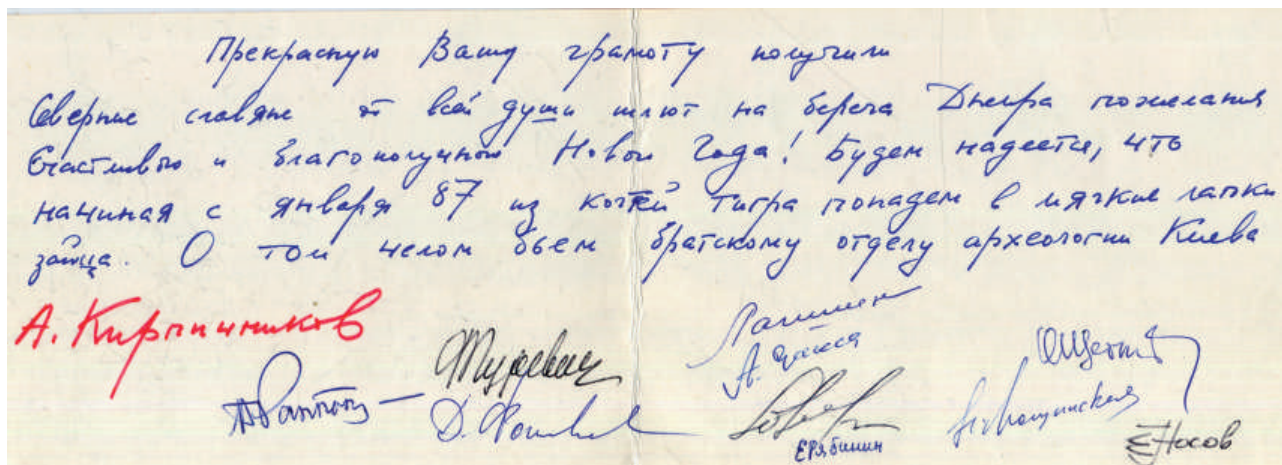 Прекрасную Вашу грамоту получили
Северные славяне от всей души шлют на берега Днепра пожелания
Счастливого и благополучного Нового Года! Будем надеется, что
начиная с января 87 из когтей тигра попадем в мягкие лапки
зайца. О том челом бьем братскому отделу археологии Киева
А. Кирпичников
Е Рябинин
Е Носов